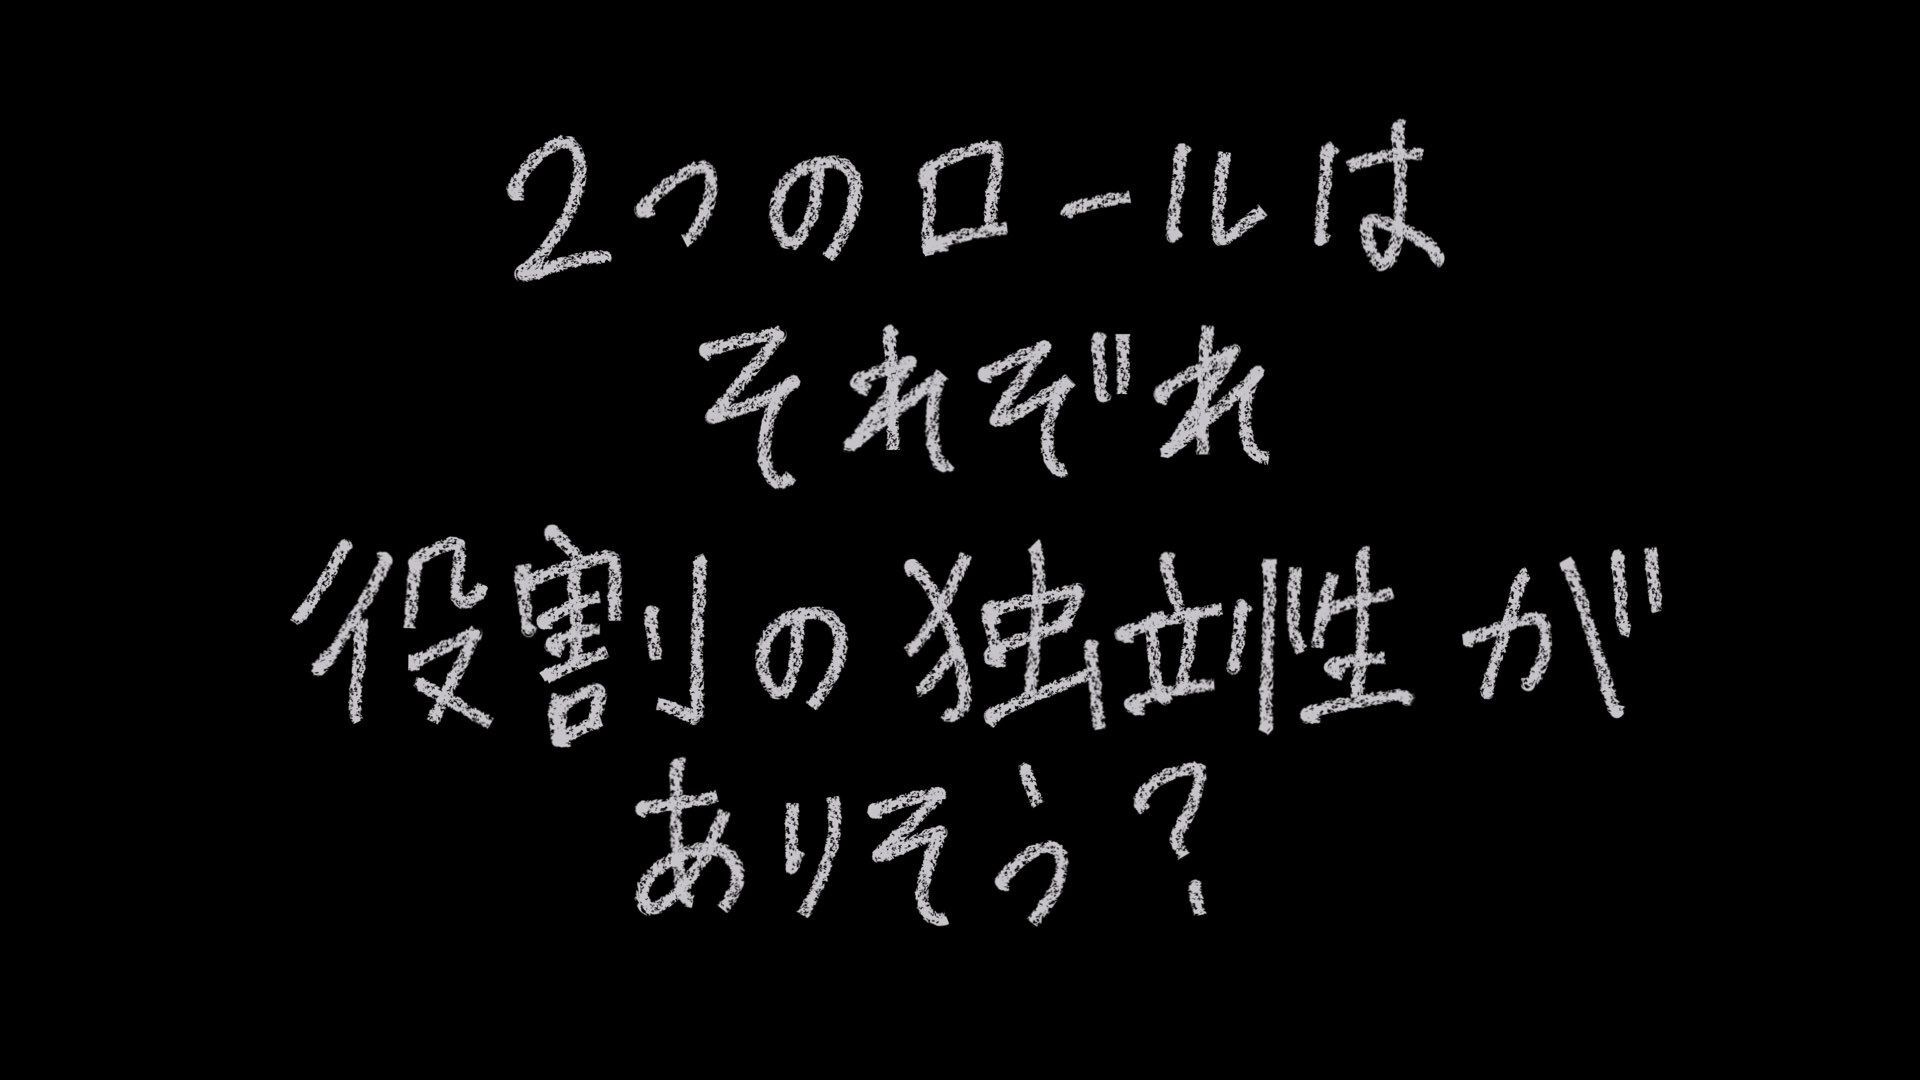 2つのロールは
それぞれ
役割の独立性が
ありそう?